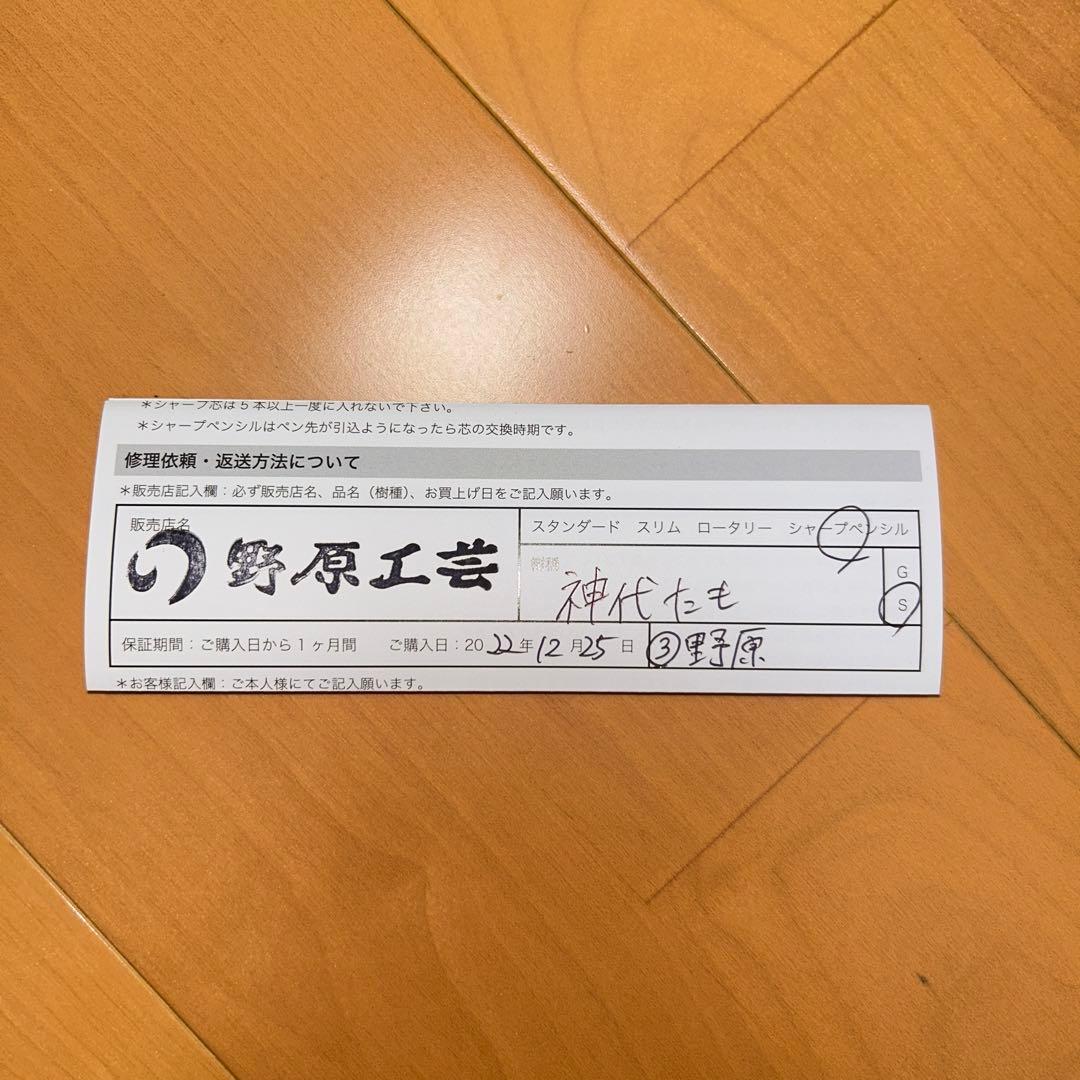 ＊シャープ芯は５本以上一度に入れないで下さい。
＊シャープペンシルはペン先が引込ようになったら芯の交換時期です。
修理依頼・返送方法について
＊販売店記入欄：必ず販売店名、品名（樹種）、お買上げ日をご記入願います。
販売店名
野原工芸
スタンダード　スリム　ロータリー　シャープペンシル
樹種
神代たも
G
S
保証期間：ご購入日から１ヶ月間　ご購入日：2022年12月25日 ③野原
＊お客様記入欄：ご本人様にてご記入願います。